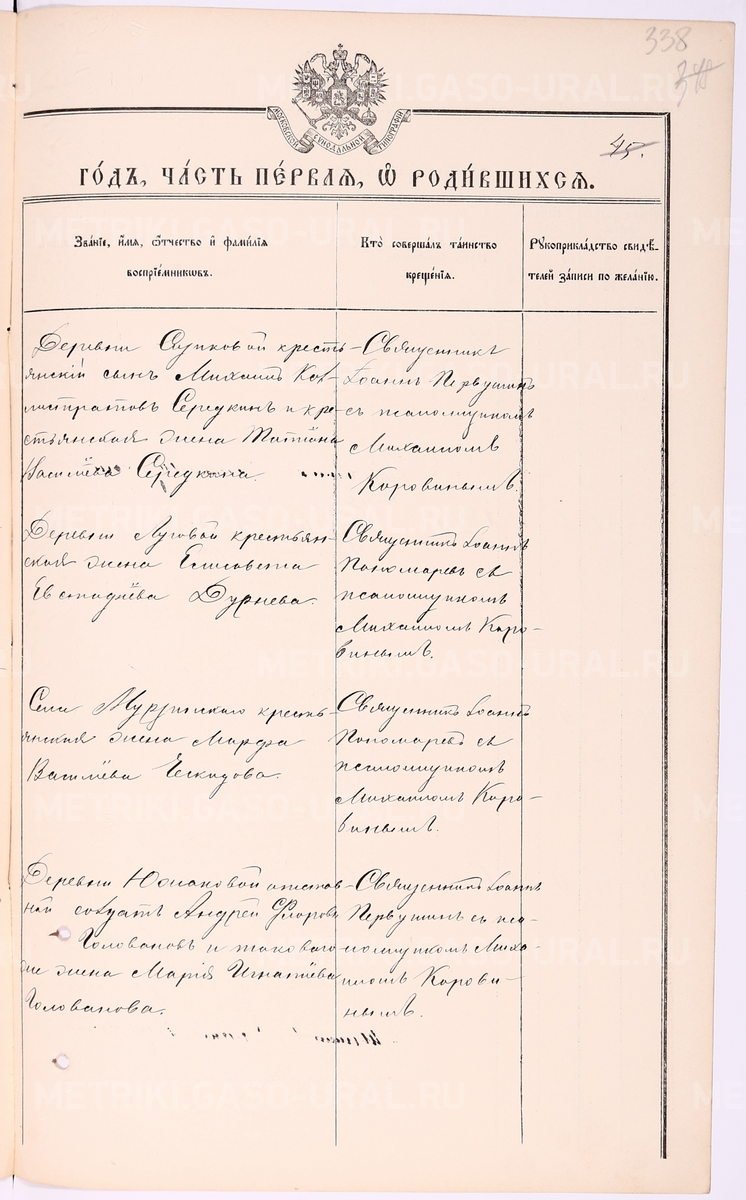 338
45.
МОСКОВСКОЙ СѴНОДАЛЬНОЙ ТИПОГРАФІИ
ГО́ДЪ, ЧА́СТЬ ПЕ́РВАЯ, Ѽ РОДИ́ВШИХСЯ.
Зва́ніе, и҆́мя, ѻ҆́тчество и҆ фами́лїѧ воспрїе́мникѡвъ.
Кто̀ соверша́лъ та́инство креще́нїѧ.
Рꙋкоприкла́дство свидѣ́телей за́писи по жела́нїю.
Деревни крестьянскій сынъ Михаилъ Середкинъ и крестьянская жена Татіана Васильева Середкина.
Священникъ
Іоаннъ Первушинъ
съ псаломщикомъ
Михаиломъ
Коровинымъ.
Деревни Луговой крестьян-
ская жена Елисавета
Дурнева.
Священникъ Іоаннъ
Пономаревъ съ
псаломщикомъ
Михаиломъ Коро-
винымъ.
Села Мурзинскаго кресть-
янская жена Марфа
Васильева
Священникъ Іоаннъ
Пономаревъ съ
псаломщикомъ
Михаиломъ Коро-
винымъ.
Деревни отстав-
ной солдатъ Андрей Флоровъ
Головановъ и таковаго
же жена Марія Игнатіева
Голованова.
Священникъ Іоаннъ
Первушинъ съ пса-
ломщикомъ Миха-
иломъ Корови-
нымъ.
METRIKI.GASO-URAL.RU